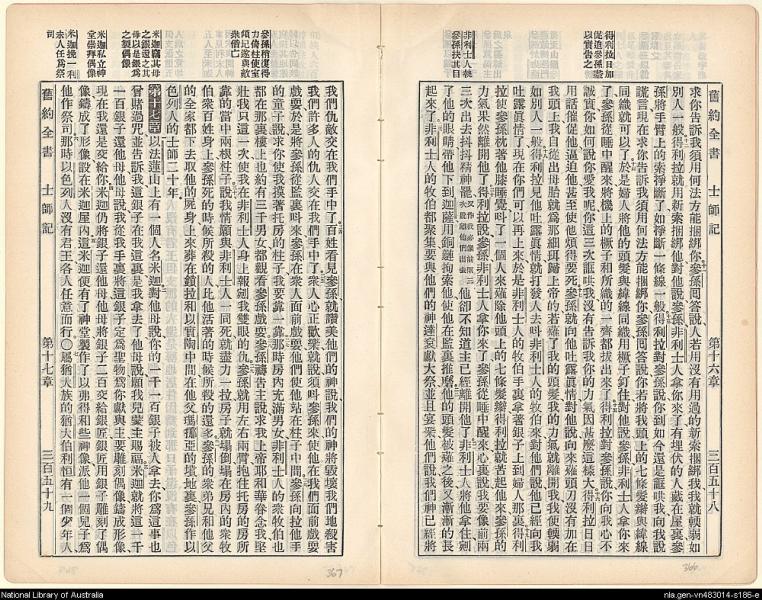 舊約全書 士師記 第十六章 三百五十八
求你告訴我須用何法方能捆綁你參孫回答說人若用沒有用過的新索捆綁我我就輭弱如
別人一般得利拉就用新索捆綁他對他說參孫非利士人拿你來了有埋伏的人藏在屋裏參
孫將手臂上的索掙斷了如掙斷一條線一般得利拉對參孫說你到如今還是誆哄我向我說
謊言現在求你告訴我須用何法方能捆綁你參孫回答說你若將我頭上的七條髮辮與緯線
同織就可以了於是婦人將他的頭髮與緯線同織用橛子釘住對他說參孫非利士人拿你來
了參孫從睡中醒來將機上的橛子和所織的一齊都拔出來了得利拉對參孫說你向我心不
誠實你如何說你愛我呢你這三次誆哄我沒有告訴我你的力氣因甚麼這樣大得利拉日日
用話催促他逼迫他甚至使他煩得要死參孫就向他吐露眞情對他說向來薙頭刀沒有加在
我頭上我自從出母胎就爲那細珥歸上帝的若薙了我的頭髮我的力氣就離開我我便輭弱
如別人一般得利拉見他吐露眞情就打發人去叫非利士人的牧伯來對他們說他已經向我
吐露眞情了現在你們可以再上來於是非利士人的牧伯手裏拿著銀子上到婦人那裏得利
拉使參孫枕著他膝睡覺叫了一個人來薙除他頭上的七條髮辮得利拉就苦起他來參孫的
力氣果然離開他了得利拉說參孫非利士人拿你來了參孫從睡中醒來心裏說我要像前兩
三次出去抖抖精神罷
他卻不知道主已經離開他了非利士人將他拿住剜
了他的眼睛帶他下到迦薩用銅鏈拘索他使他在監裏推磨然而他的頭髮被薙之後又漸漸的長
起來了非利士人的牧伯都聚集要與他們的神大袞獻大祭並且宴樂他們說我們神已經將
得利拉日加
促迫參孫遂
以實告之
非利士人執
參孫抉其目
舊約全書 士師記 第十七章 三百五十九
我們仇敵交在我們手中了百姓看見參孫就讚美他們的神說我們的神將毀壞我們地殺害
我們許多人的仇人交在我們手中了衆人心正歡樂就說須叫參孫來使他在我們面前戲耍
戲耍於是將參孫從監裏叫來參孫在衆人面前戲耍他們使他站在柱子中間參孫向拉他手
的童子說求你使我摸著托房的柱子我要靠一靠那時房內充滿男女非利士人的衆牧伯也
都在那裏樓上也約有三千男女都觀看參孫戲耍參孫禱告主說求我上帝耶和華眷念我堅
壯我只這一次使我在非利士人身上報剜我雙眼的仇參孫就用左右兩臂抱住托房的房所
靠的當中兩根柱子說我情願與非利士人一同死就盡力一拉房子就塌倒塌在房內的衆牧
伯衆百姓身上參孫死的時候所殺的人比他活著的時候所殺的還多參孫的衆弟兄和他父
的全家都下去取他的屍身上來葬在鎖拉和以實陶中間在他父瑪挪亞的墳地裏參孫作以
色列人的士師二十年。
第十七章 以法蓮山上有一個人名米迦對他母說你的一千一百銀子被人拿去你爲這事也
曾賭過咒並告訴我這銀子在我這裏是我拿去了他母說願我兒蒙主賜福米迦就將這一千
一百銀子還他母他母說我從我手裏將這銀子定爲聖物爲你獻與主要雕刻偶像鑄成形像
現在我還是交給你米迦仍將銀子還他母他母將銀子二百交給銀匠銀匠用銀子雕刻了偶
像鑄成了形像設在米迦屋內這米迦便有了神堂製作了以弗得和些神像派他一個兒子爲
他作祭司那時以色列人沒有君王各人任意而行○屬猶大族的猶大伯利恒有一個少年人
參孫稍復得
力倚柱使室
傾圮遂與敵
衆偕亡
米迦竊其母
之銀還之其
母以是銀爲
之製偶像
米迦私立神
堂崇拜偶像
米迦挽一利
未人任爲祭
司
367
366
National Library of Australia
nla.gen-vn483014-s186-e